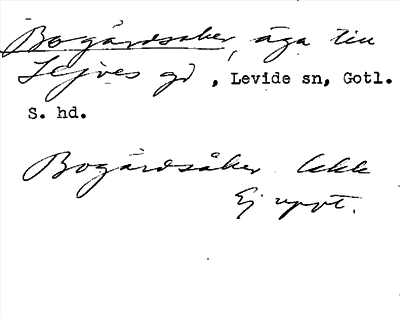 Bogårdsåker, äga till
Hejves gd, Levide sn, Gotl.
S. hd.
Bogårdsåker lokk
Ej uppt.